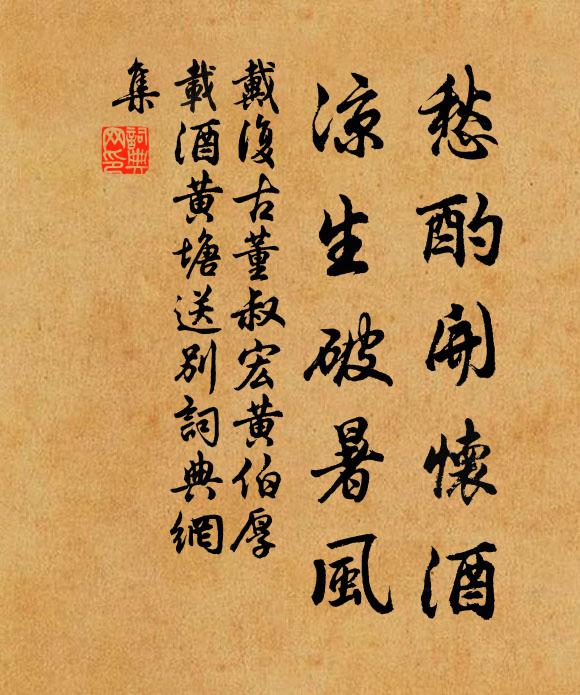 愁酌開懷酒
涼生破暑風
戴復古董叔宏黃伯厚
載酒黃塘送別詞典網
集
詞典
网印